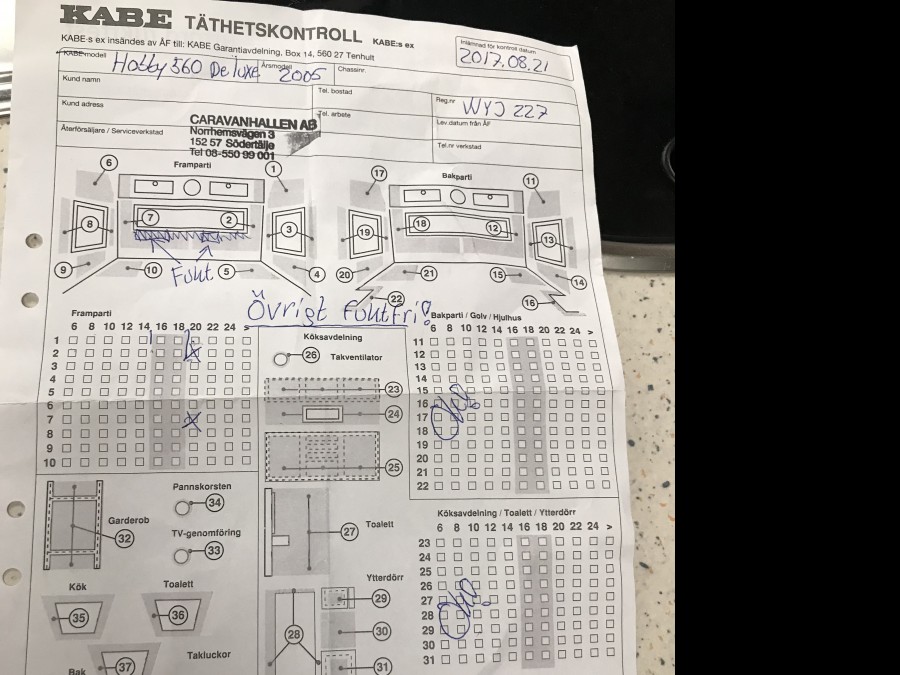 KABE TÄTHETSKONTROLL KABE:s ex
KABE:s ex insändes av ÅF till: KABE Garantiavdelning, Box 14, 560 27 Tenhult
Inlämnad för kontroll datum
2017.08.21
KABE-modell Hobby 560 De luxe Årsmodell 2005 Chassinr.
Kund namn Tel. bostad Reg.nr WYJ 227
Kund adress Tel. arbete Lev.datum från ÅF
Återförsäljare / Serviceverkstad Tel.nr verkstad
CARAVANHALLEN AB
Norrhemsvägen 3
152 57 Södertälje
Tel 08-550 99 001
Framparti Bakparti
6 1 17 11
8 7 2 3 19 18 12 13
9 10 5 4 20 21 15 14
22 16
Fukt.
Övrigt fuktfri!
Framparti
6 8 10 12 14 16 18 20 22 24 >
1
2
3
4
5
6
7
8
9
10
Köksavdelning
26 Takventilator
23
24
25
Bakparti / Golv / Hjulhus
6 8 10 12 14 16 18 20 22 24 >
11
12
13
14
15
16
17
18
19
20
21
22
Garderob
32
Pannskorsten
34
TV-genomföring
33
27 Toalett
Ytterdörr
29
28 30
31
Kök Toalett
35 36
Takluckor
Bak 37
Köksavdelning / Toalett / Ytterdörr
6 8 10 12 14 16 18 20 22 24 >
23
24
25
26
27
28
29
30
31